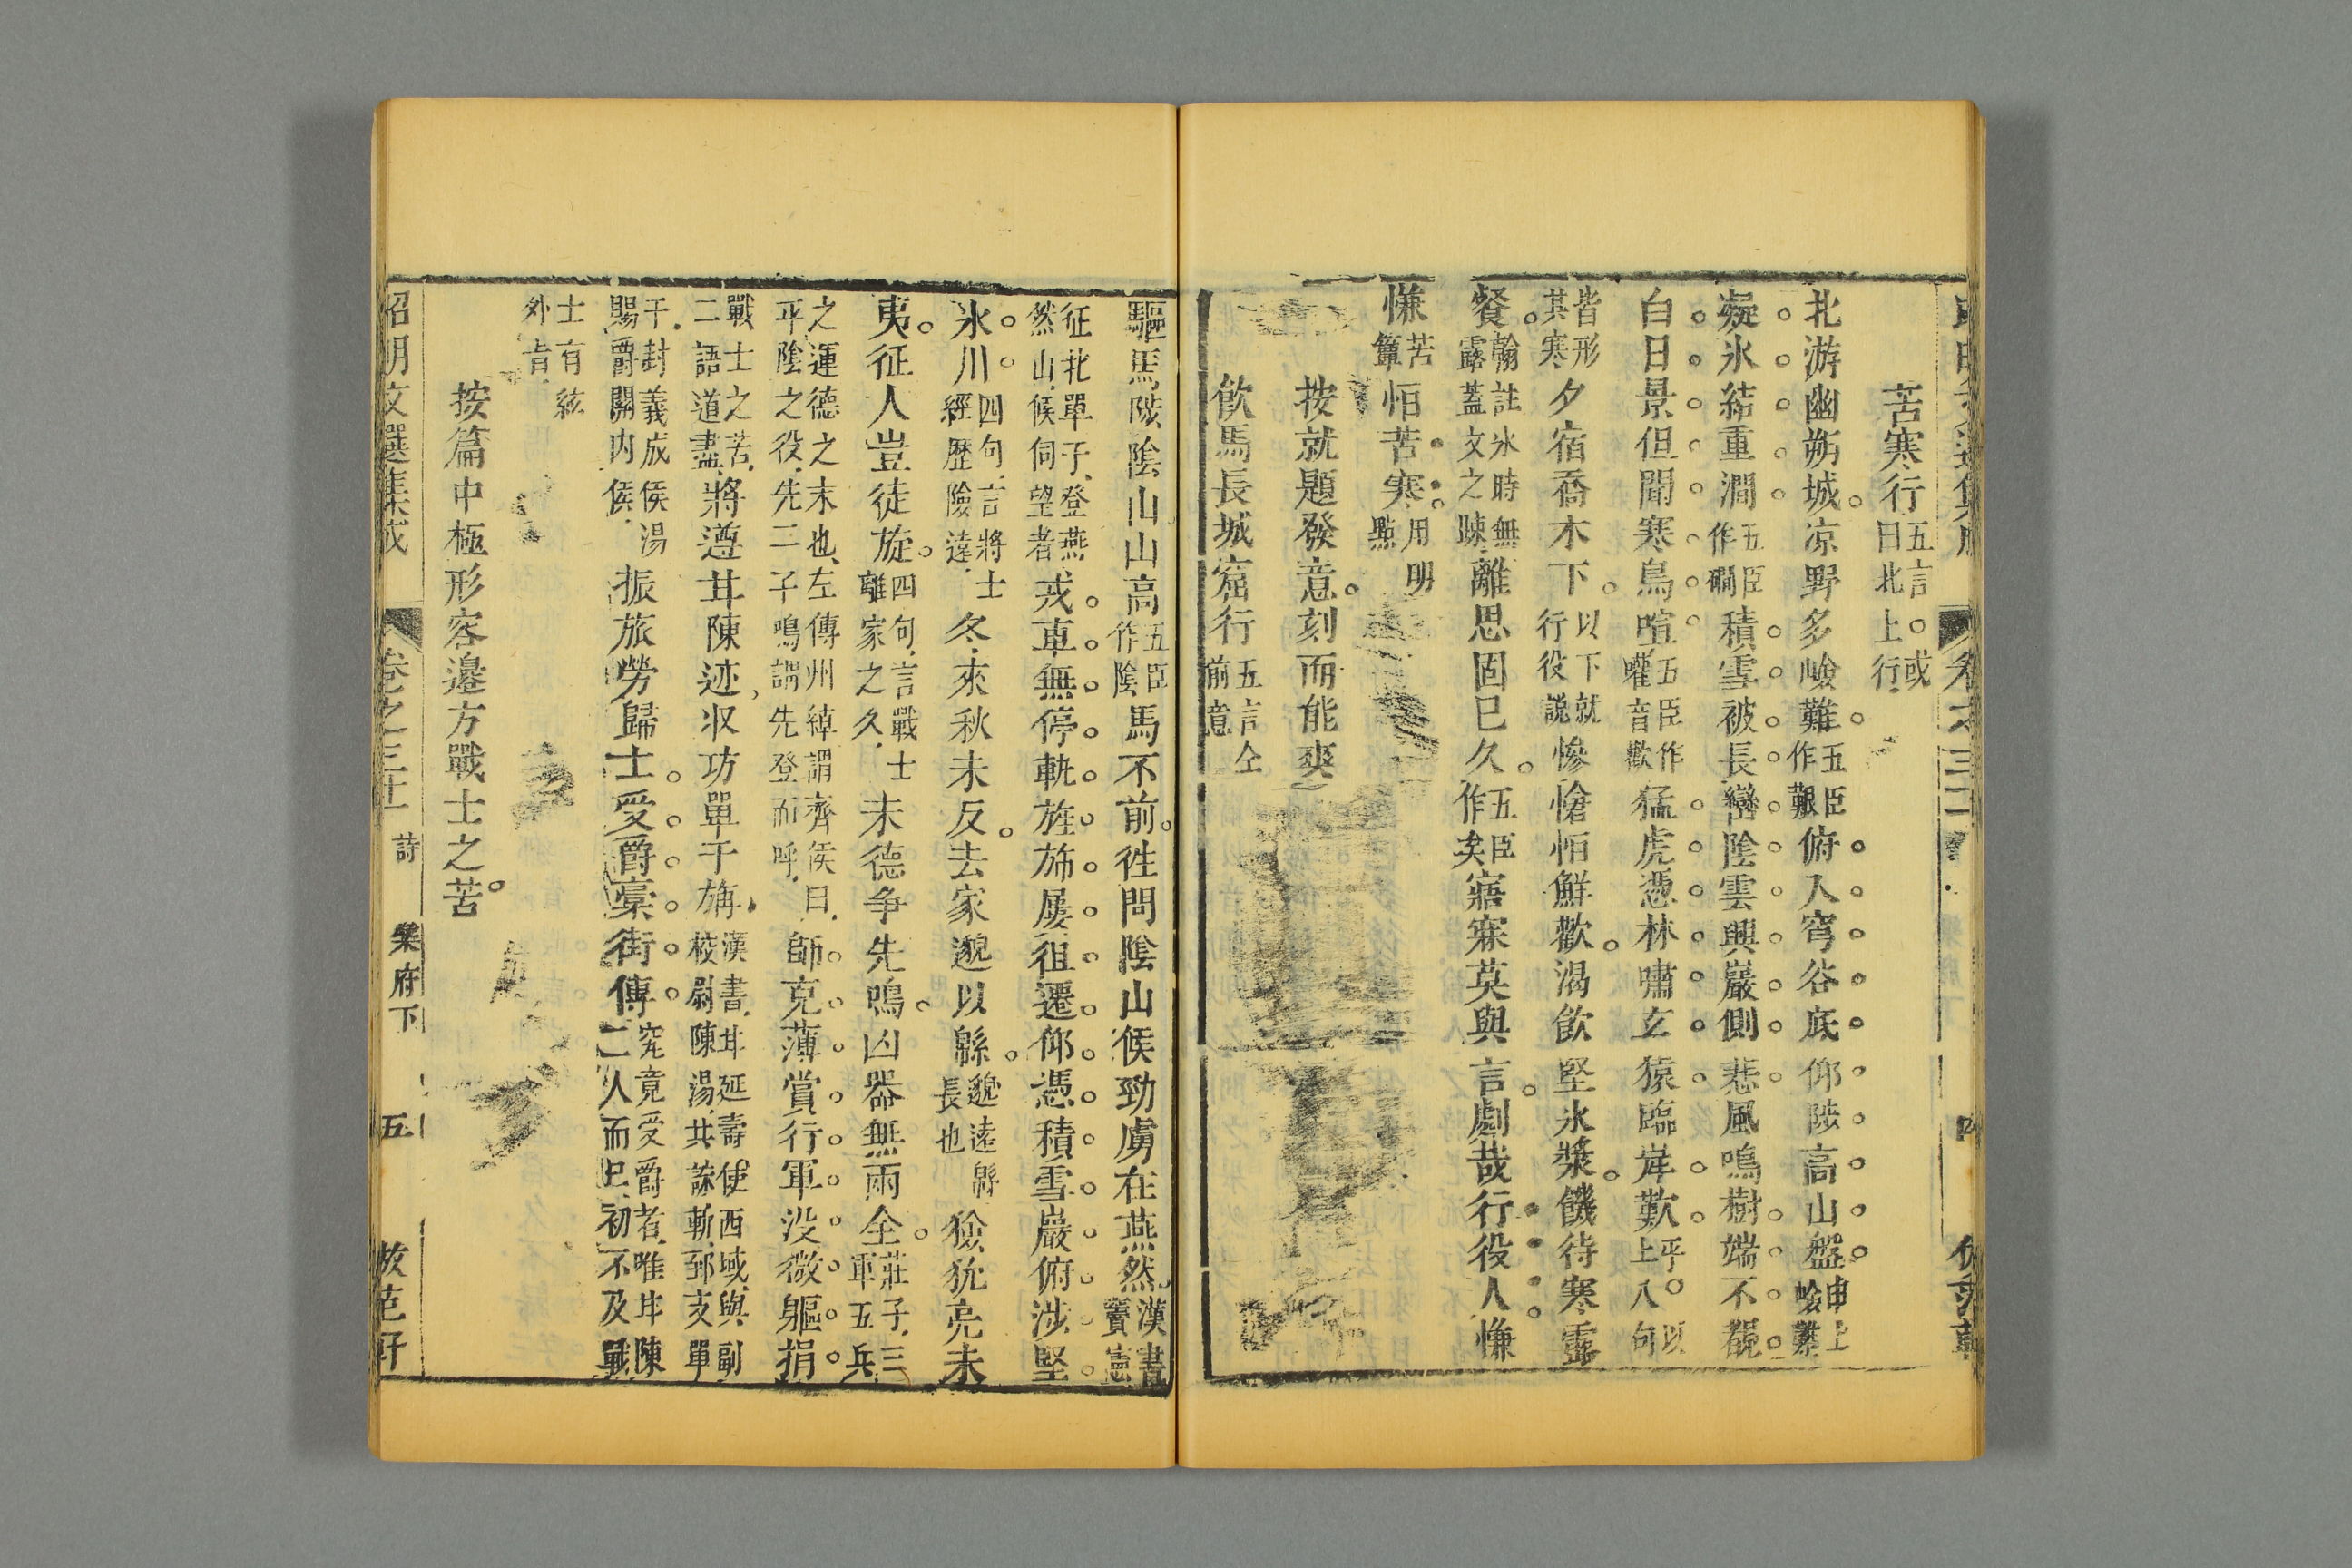 苦寒行五言○或曰北上行
北游幽朔城凉野多嶮難五臣作艱俯入穹谷底仰陟高山盤申上嶮難
凝氷結重澗五臣作磵積雪被長巒陰雲興巖側悲風鳴樹端不覩
白日景但聞寒鳥喧五臣作嚾音歡猛虎憑林嘯玄猿臨岸歎平○以上八句
皆形其寒夕宿喬木下以下就行役說慘愴恒鮮歡渴飲堅氷漿饑待寒露
餐翰註氷時無露蓋文之踈離思固已久五臣作矣寤寐莫與言劇哉行役人慊
慊苦簟恒苦寒用明點
按就題發意刻而能爽
飲馬長城窟行五言仝前意
驅馬陟陰山山高五臣作陰馬不前徃問陰山候勁虜在燕然漢書竇憲
征北單于登燕然山候伺望者戎車無停軌旌斾屢徂遷仰憑積雪巖俯涉堅
氷川四句言將士經歷險遠冬來秋未反去家邈以緜邈遠緜長也獫狁亮未
夷征人豈徒旋四句言戰士離家之久末德争先鳴凶器無兩全莊子三軍五兵
之運德之末也左傳州綽謂齊侯曰平陰之役先二子鳴謂先登而呼師克薄賞行軍没微軀捐
戰士之苦二語道盡將遵甘陳迹収功單于旃漢書甘延壽使西域與副校尉陳湯共誅斬郅支單
于封義成侯湯賜爵關内侯振旅勞歸士受爵藁街傳究竟受爵者唯甘陳二人而已初不及戰
士有絃外肯
按篇中極形容邉方戰士之苦
昭明文選集成
卷之三十一
詩
樂府下
五